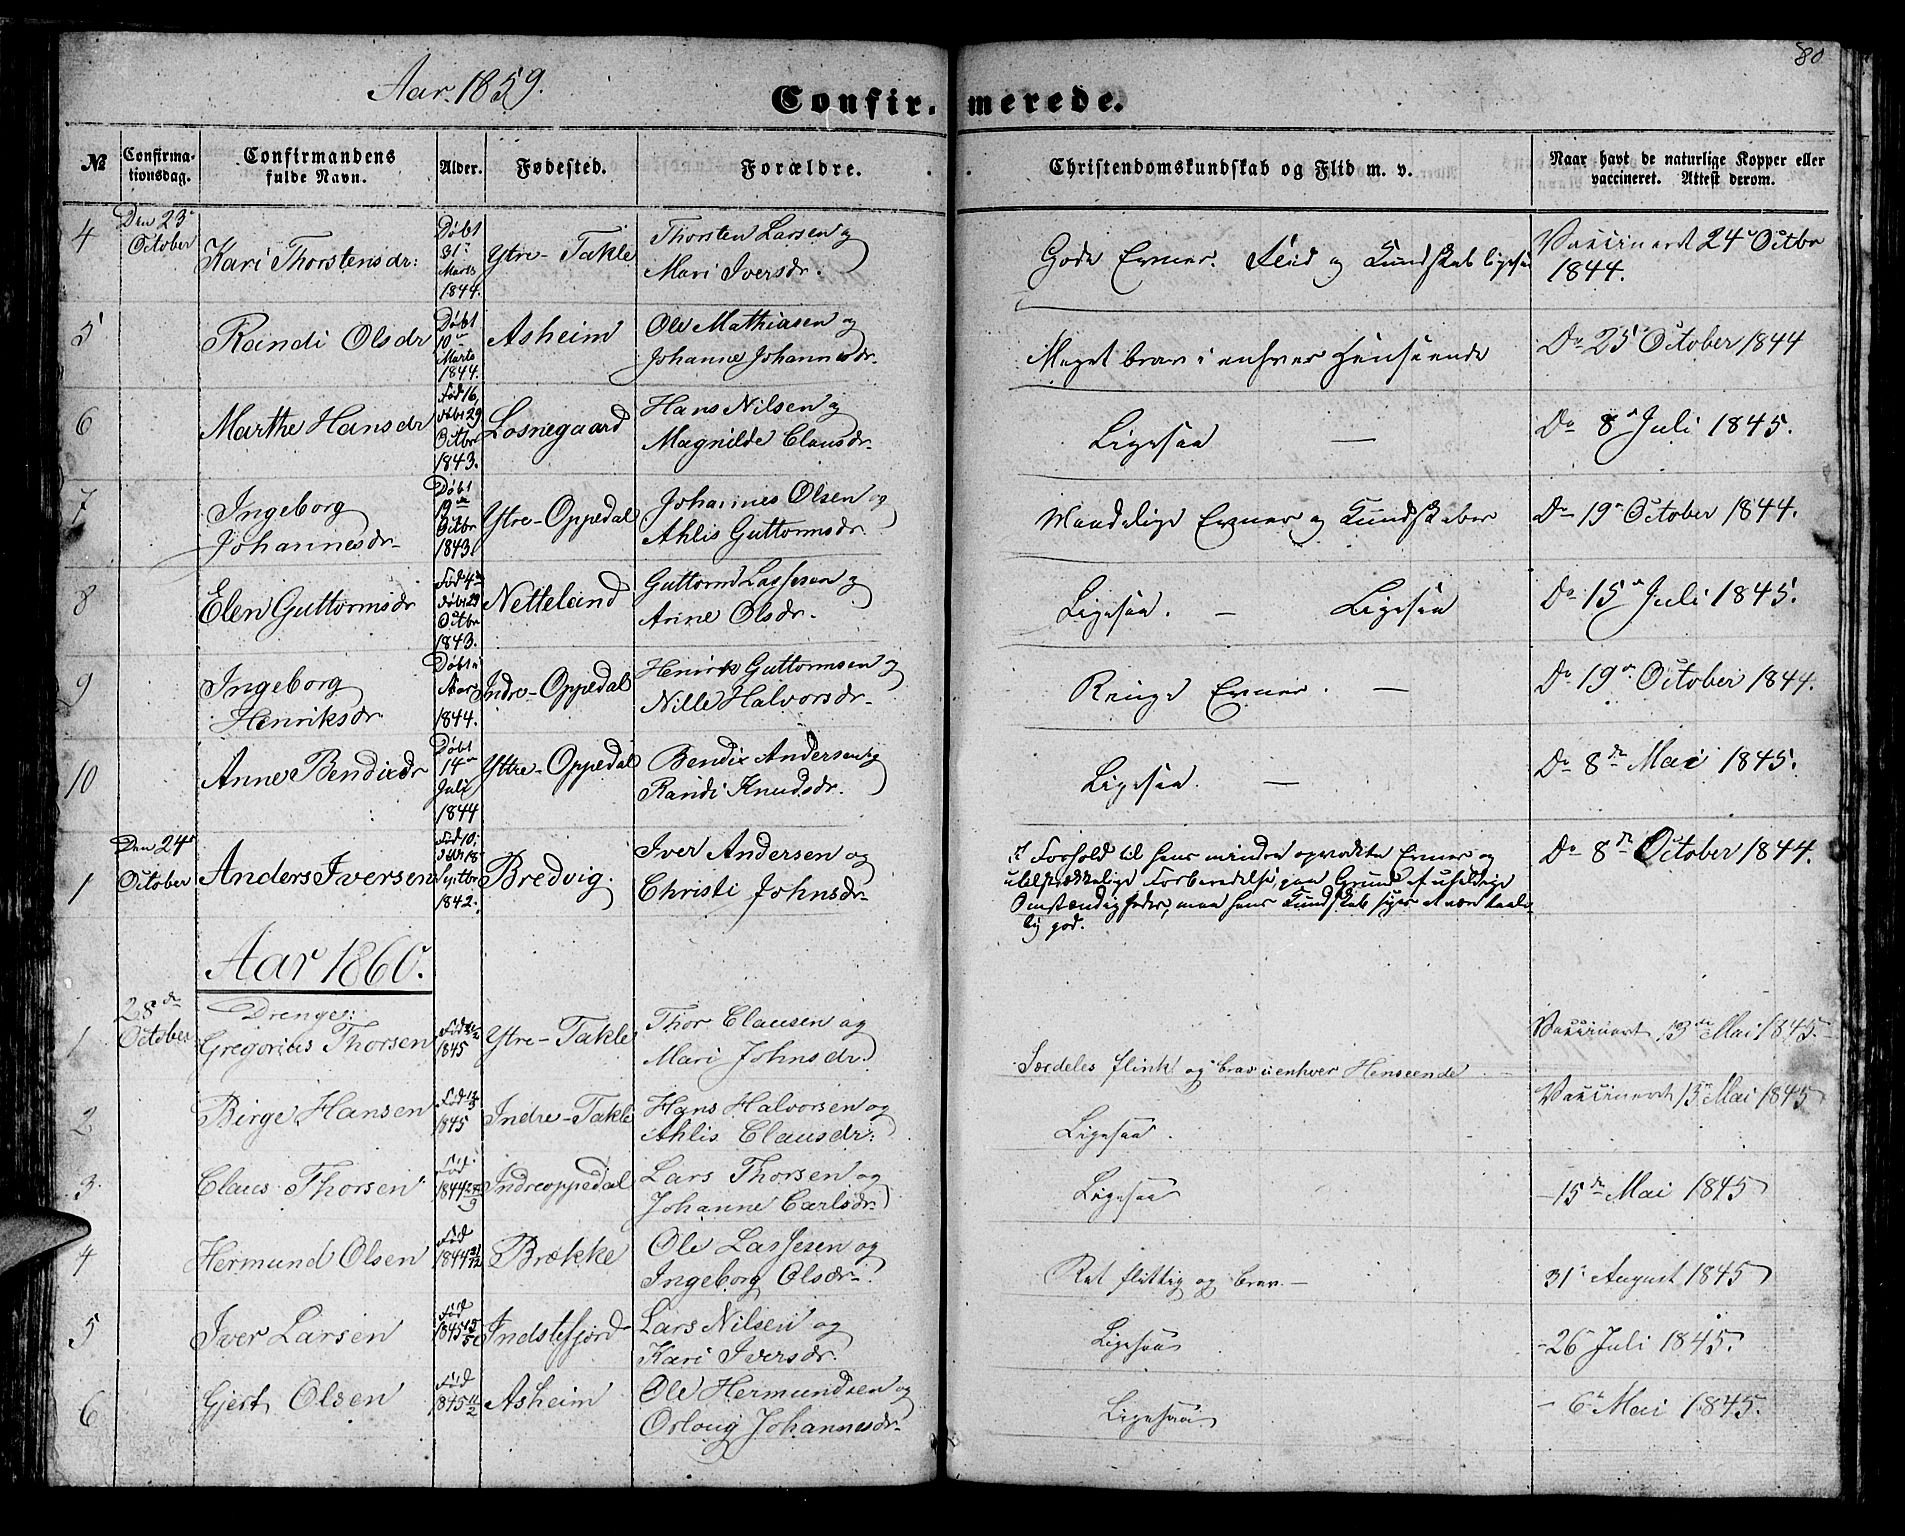 80
Aar 1859.
Confirmerede.
No
Confirmationsdag.
Confirmandens fulde Navn.
Alder.
Fødested.
Forældre.
Christendomskundskab og Flid m. v.
Naar havt de naturlige Kopper eller vaccineret. Attest derom.
4 Den 23e October Kari Thorstensdr: Døbt 31e Marts 1844. Ytre-Takle Thorsten Larsen og Mari Iversdr. Gode Evner. Flid og Kundskab ligesaa Vaccineret 24e Octbr 1844.
5 Randi Olsdr Døbt 10de Marts 1844. Asheim Ole Mathiasen og Johanne Johannesdr. Meget brav i enhver Henseende Do 25e October 1844
6 Marthe Hansdr Fød 16, døbt 29 Octbr 1843. Losnegaard Hans Nilsen og Magnilde Clausdr. Ligesaa — Do 8de Juli 1845.
7 Ingeborg Johannesdr Døbt 19de Octbr 1843. Ytre-Oppedal Johannes Olsen og Ahlis Guttormsdr. Maadelige Evner og Kundskaber Do 19de October 1844.
8 Elen Guttormsdr Fød 4de døbt 29 Octbr 1843. Netteland Guttorm Lassesen og Anne Olsdr. Ligesaa. — Ligesaa Do 15de Juli 1845.
9 Ingeborg Henriksdr. Døbt Mar 1844. Indre-Oppedal Henrik Guttormsen og Nille Halvorsdr. Ringe Evner. — Do 19de October 1844.
10 Anne Bendixdr Døbt 14de Juli 1844 Yttre-Oppedal Bendix Andersen og Randi Knudsdr. Ligesaa. — Do 8de Mai 1845.
1 Den 24e October Anders Iversen Fød 10. døbt 18 Septbr 1842. Bredvig. Iver Andersen og Christi Johnsdr. I Forhold til hans mindre opvakte Evner og utilstrækkelige Forberedelse paa Grund af uheldige Omstændigheder, maa hans Kundskab siges at være taalelig god. Do 8de October 1844.
Aar 1860.
Drenge:
1 28de October Gregorius Thorsen Fød 1845 Ytre-Takle Thor Clausen og Mari Johnsdr. Særdeles flink og brav i enhver Henseende Vaccineret 13de Mai 1845.
2 Birge Hansen Fød 1845 Indre-Takle Hans Halvorsen og Ahlis Clausdr: Ligesaa. Vaccineret 13de Mai 1845
3. Claus Thorsen Fød 1844 Indreoppedal Lars Thorsen og Johanne Carlsdr. Ligesaa — 15de Mai 1845
4 Hermund Olsen Fød 1844 Brække Ole Lassesen og Ingeborg Olsdr. Ret flittig og brav. — 31e August 1845
5 Iver Larsen Fød 1845 Indstefjord Lars Nilsen og Kari Iversdr. Ligesaa — 26 Juli 1845.
6 Gjert Olsen Fød 1845 11/2 Asheim Ole Hermundsen og Orloug Johannesdr. Ligesaa — 6te Mai 1845.